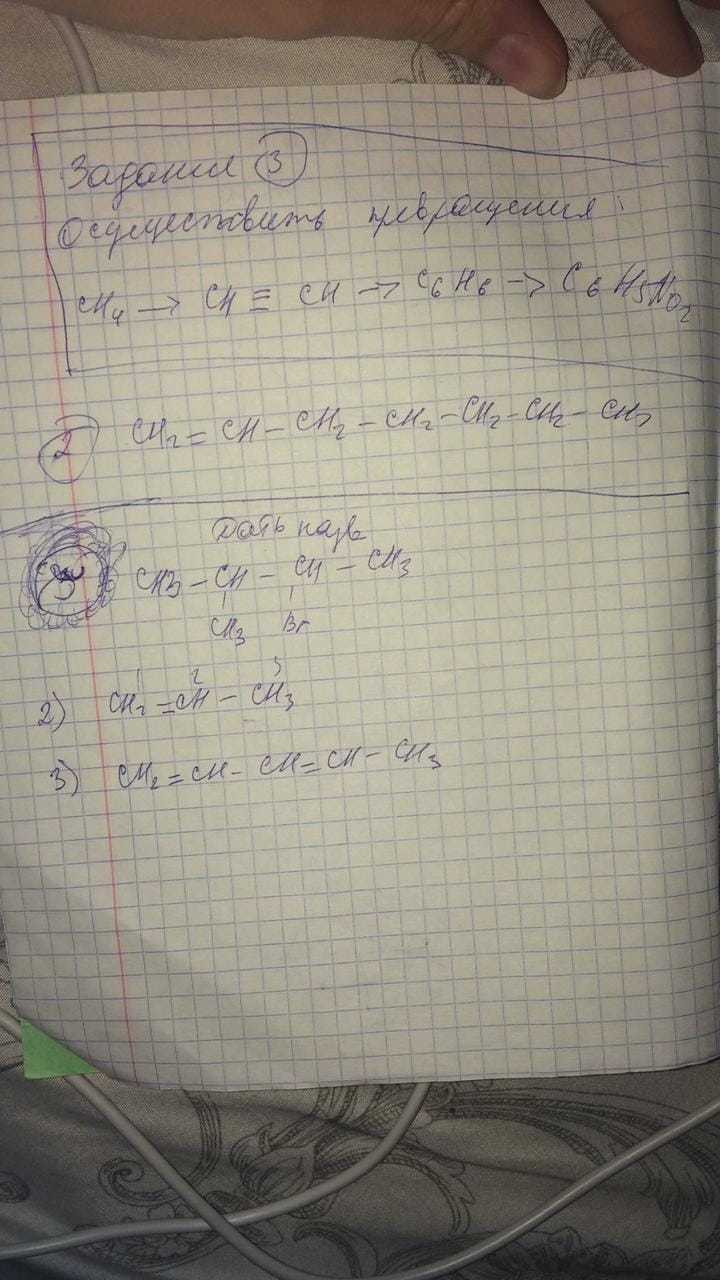 Задания 3
Осуществить превращения:
CH₄ → CH ≡ CH → C₆H₆ → C₆H₅NO₂
2 CH₂ = CH – CH₂ – CH₂ – CH₂ – CH₂ – CH₃
Дать назв
3 CH3 – CH – CH – CH₃
CH₃ Br
1 2 3
2) CH₂ = CH – CH₃
3) CH₂ = CH – CH = CH – CH₃